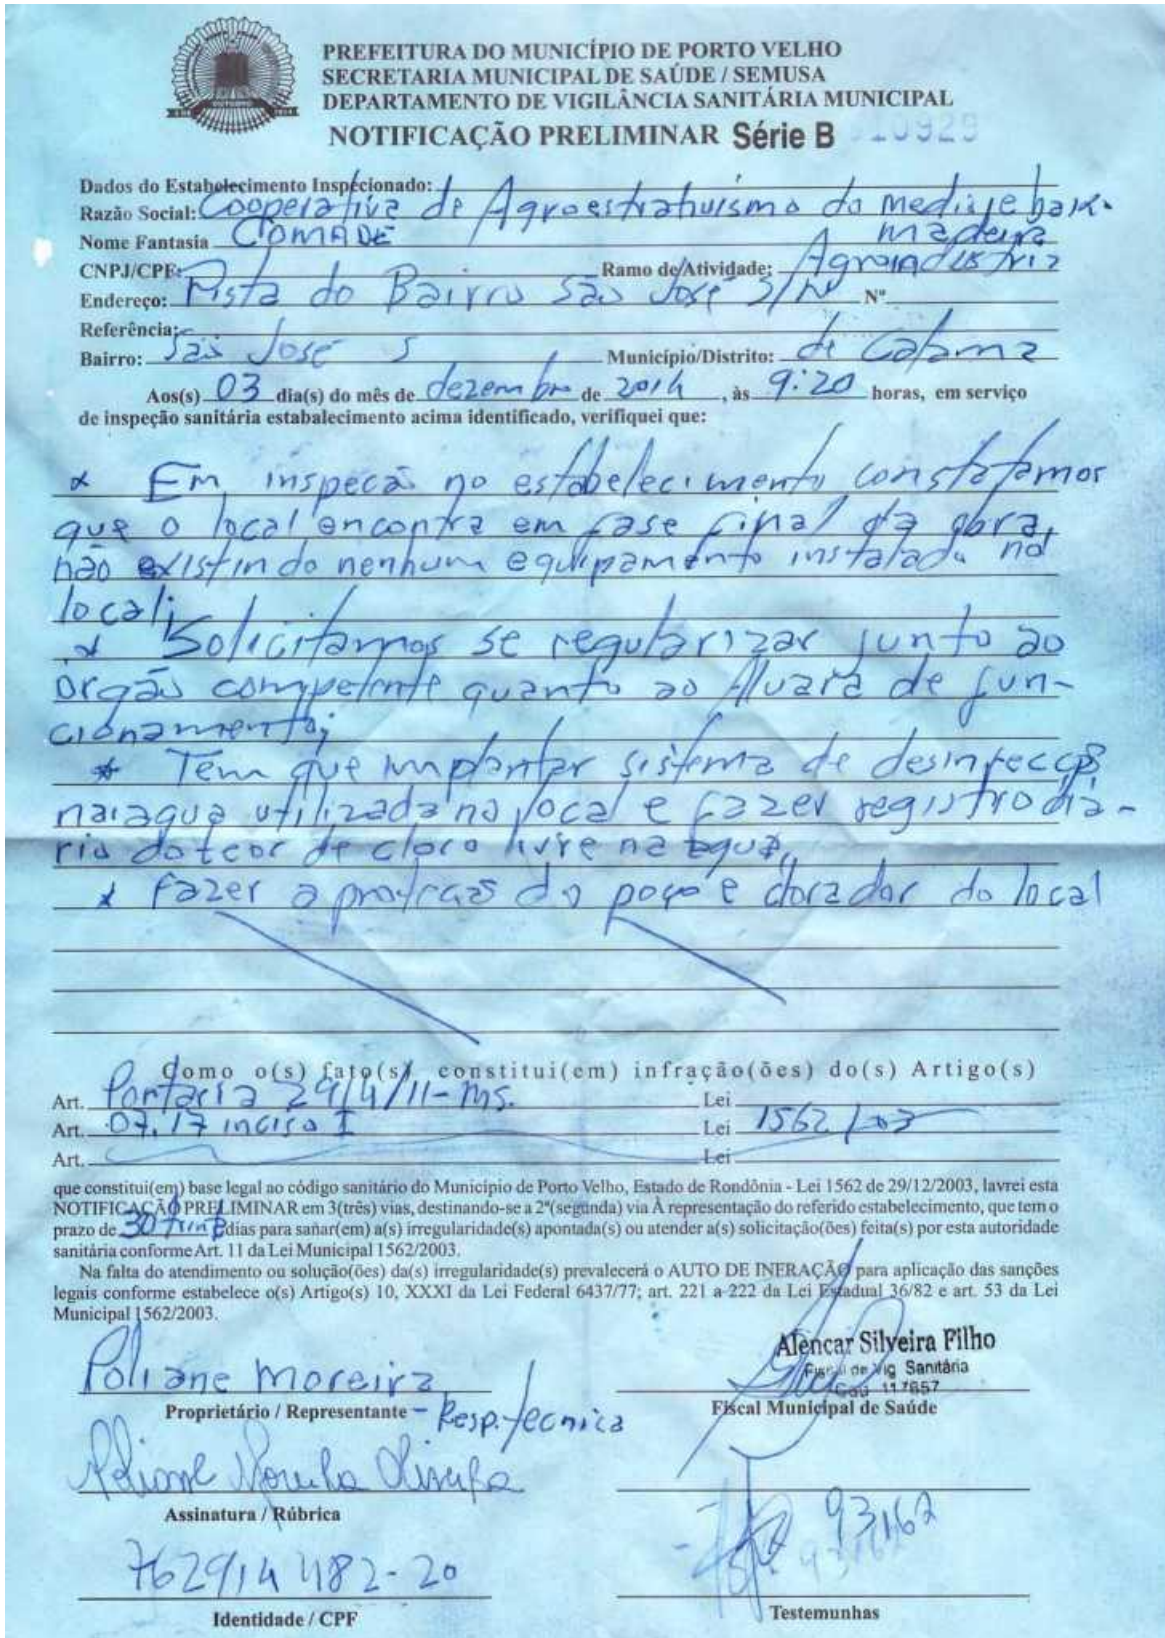 PREFEITURA DO MUNICÍPIO DE PORTO VELHO
SECRETARIA MUNICIPAL DE SAÚDE / SEMUSA
DEPARTAMENTO DE VIGILÂNCIA SANITÁRIA MUNICIPAL
NOTIFICAÇÃO PRELIMINAR Série B 010929
Dados do Estabelecimento Inspecionado:
Razão Social: Cooperativa de Agroestrativismo do medio e baix.
madeira
Nome Fantasia COMADE
CNPJ/CPF: Ramo de Atividade: Agroindustria
Endereço: Pista do Bairro São José S/Nº Nº
Referência:
Bairro: São José Município/Distrito: de Calama
Aos(s) 03 dia(s) do mês de dezembro de 2014, às 9:20 horas, em serviço
de inspeção sanitária estabalecimento acima identificado, verifiquei que:
* Em inspecão no estabelecimento constatamos
que o local encontra em fase final da obra,
não existindo nenhum equipamento instalado no
local;
* Solicitamos se regularizar junto ao
orgão competente quanto ao Alvará de fun-
cionamento;
* Tem que implantar sistema de desinfecção
na agua utilizada no local e fazer registro diá-
rio do teor de cloro livre na agua,
* Fazer a proteção do poço e clorador do local
Como o(s) fato(s), constitui(em) infração(ões) do(s) Artigo(s)
Art. Portaria 2914/11-MS. Lei
Art. 07, 17 inciso I Lei 1562/03
Art. Lei
que constitui(em) base legal ao código sanitário do Município de Porto Velho, Estado de Rondônia - Lei 1562 de 29/12/2003, lavrei esta
NOTIFICAÇÃO PRELIMINAR em 3(três) vias, destinando-se a 2ª(segunda) via À representação do referido estabelecimento, que tem o
prazo de 30 trinta dias para sanar(em) a(s) irregularidade(s) apontada(s) ou atender a(s) solicitação(ões) feita(s) por esta autoridade
sanitária conforme Art. 11 da Lei Municipal 1562/2003.
Na falta do atendimento ou solução(ões) da(s) irregularidade(s) prevalecerá o AUTO DE INFRAÇÃO para aplicação das sanções
legais conforme estabelece o(s) Artigo(s) 10, XXXI da Lei Federal 6437/77; art. 221 a 222 da Lei Estadual 36/82 e art. 53 da Lei
Municipal 1562/2003.
Alencar Silveira Filho
Fiscal de Vig Sanitária
Cad 117857
Poliane Moreira
Proprietário / Representante - Resp. tecnica
Fiscal Municipal de Saúde
Poliane Moreira Oliveira
Assinatura / Rúbrica
93162
762914482-20
Identidade / CPF
Testemunhas